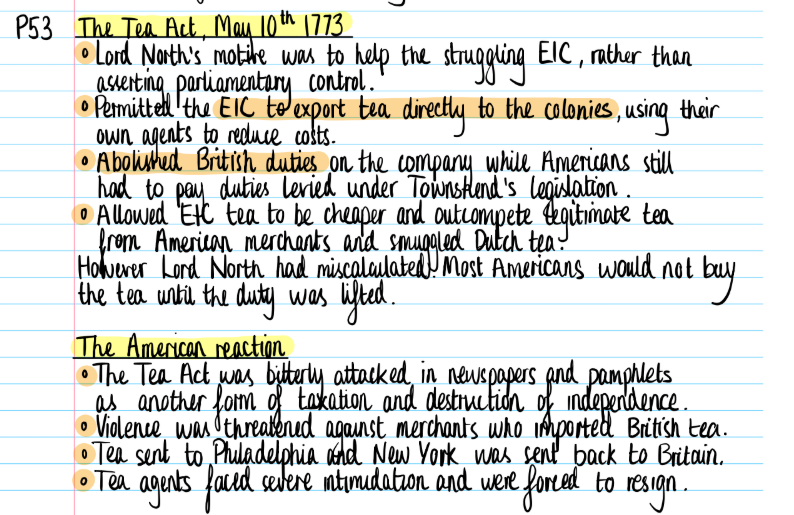 P53 The Tea Act, May 10th 1773
• Lord North's motive was to help the struggling EIC, rather than
asserting parliamentary control.
• Permitted the EIC to export tea directly to the colonies, using their
own agents to reduce costs.
• Abolished British duties on the company while Americans still
had to pay duties levied under Townshend's legislation.
• Allowed EIC tea to be cheaper and outcompete legitimate tea
from American merchants and smuggled Dutch tea.
However Lord North had miscalculated. Most Americans would not buy
the tea until the duty was lifted.
The American reaction
• The Tea Act was bitterly attacked in newspapers and pamphlets
as another form of taxation and destruction of independence.
• Violence was threatened against merchants who imported British tea.
• Tea sent to Philadelphia and New York was sent back to Britain.
• Tea agents faced severe intimudation and were forced to resign.